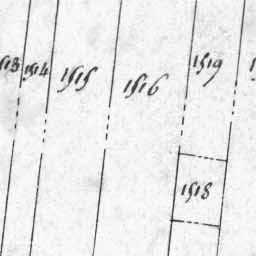 1514
1515
1516
1519
1518